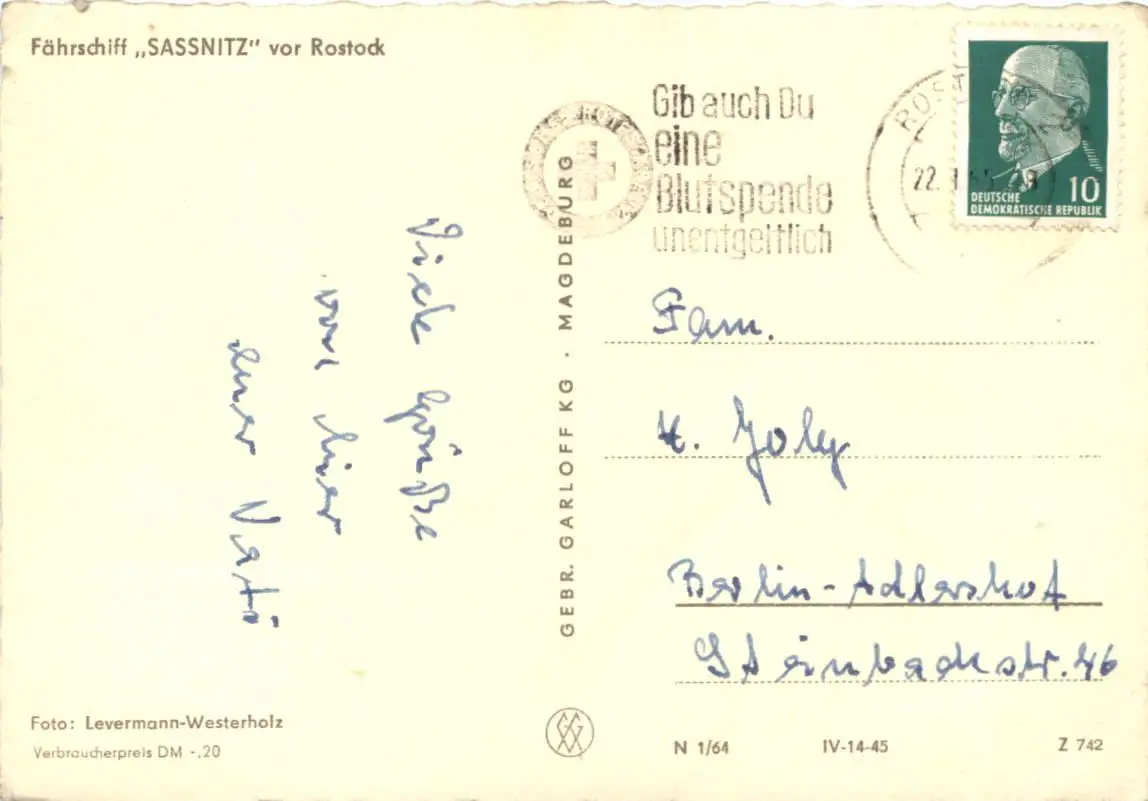 Fährschiff „SASSNITZ" vor Rostock
Gib auch Du
eine
Blutspende
unentgeltlich
ROS
22.
DEUTSCHE
DEMOKRATISCHE REPUBLIK
10
Viele Grüße
von hier
euer Vati
GEBR. GARLOFF KG · MAGDEBURG
Fam.
H. Joly
Berlin-Adlershof
Steinbachstr. 46
Foto: Levermann-Westerholz
Verbraucherpreis DM -,20
N 1/64
IV-14-45
Z 742